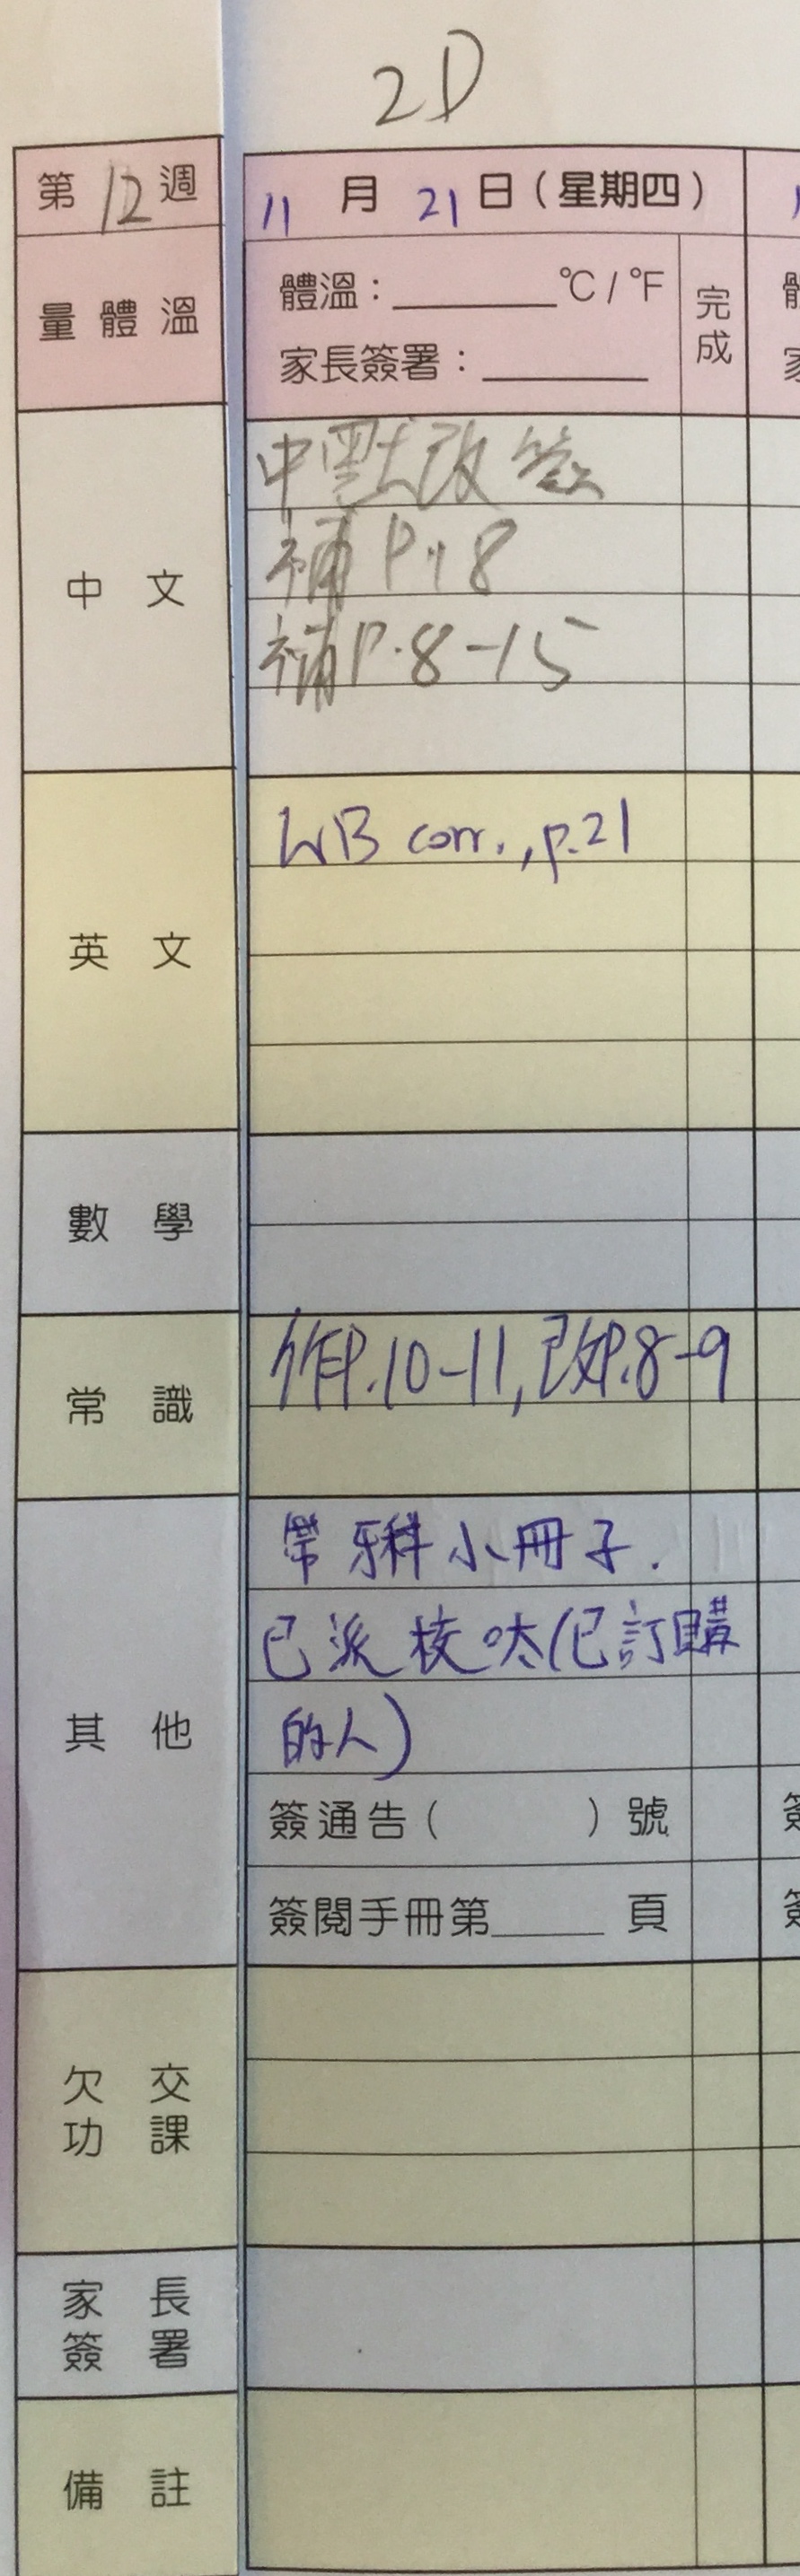 2D
第12週
11月21日（星期四）
量體溫
體溫：______°C / °F
家長簽署：______
完成
中文
中默改簽
補P.18
補P.8-15
英文
WB corr., p.21
數學
常識
作P.10-11, 改P.8-9
其他
帶牙科小冊子.
已派校呔(已訂購
的人)
簽通告（　　　）號
簽閱手冊第______頁
欠交
功課
家長
簽署
備註